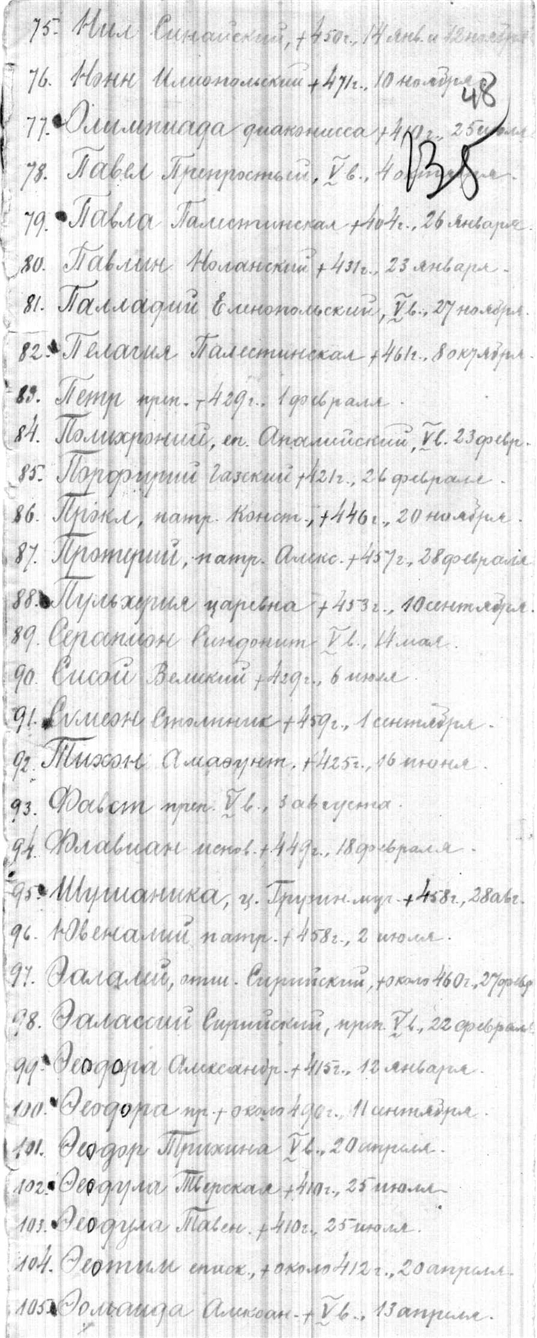 75. Нил Синайский, +450г., 14 янв. и 12 ноября
76. Нонн Илиопольский +471г., 10 ноября
48
77. Олимпиада диаконисса +410г., 25 июля
138
78. Павел Препростый, V в., 4 октября.
79. Павла Палестинская +404г., 26 января.
80. Павлин Ноланский +431г., 23 января.
81. Палладий Еленопольский, V в., 27 ноября.
82. Пелагия Палестинская +461г., 8 октября.
83. Петр преп. +429г. 1 февраля.
84. Полихроний, еп. Апалийский, V в. 23 февр.
85. Порфирий Газский +421г., 26 февраля.
86. Прокл, патр. Конст., +446г., 20 ноября.
87. Протерий, патр. Алекс. +457г., 28 февраля
88. Пульхерия царевна +453г., 10 сентября.
89. Серапион Синдонит V в., 14 мая.
90. Сисой Великий +429г., 6 июля.
91. Симеон Столпник +459г., 1 сентября.
92. Тихон Амафунт. +425г., 16 июня.
93. Фавст преп. V в., 3 августа.
94. Флавиан испов. +449г., 18 февраля.
95. Шушаника, ц. Грузин. муч. +458г., 28 авг.
96. Ювеналий патр. +458г., 2 июля.
97. Ѳалалей, отш. Сирийский, +около 460г., 27 февр
98. Ѳалассий Сирийский, преп. V в., 22 февраля
99. Ѳеодора Александр. +415г., 12 января.
100. Ѳеодора пр. +около 490г., 11 сентября.
101. Ѳеодор Трихина V в., 20 апреля.
102. Ѳеодула Тверская +410г., 25 июля
103. Ѳеодула Тавен. +410г., 25 июля.
104. Ѳеотим еписк., +около 412г., 20 апреля.
105. Ѳомаида Алексан. + V в., 13 апреля.